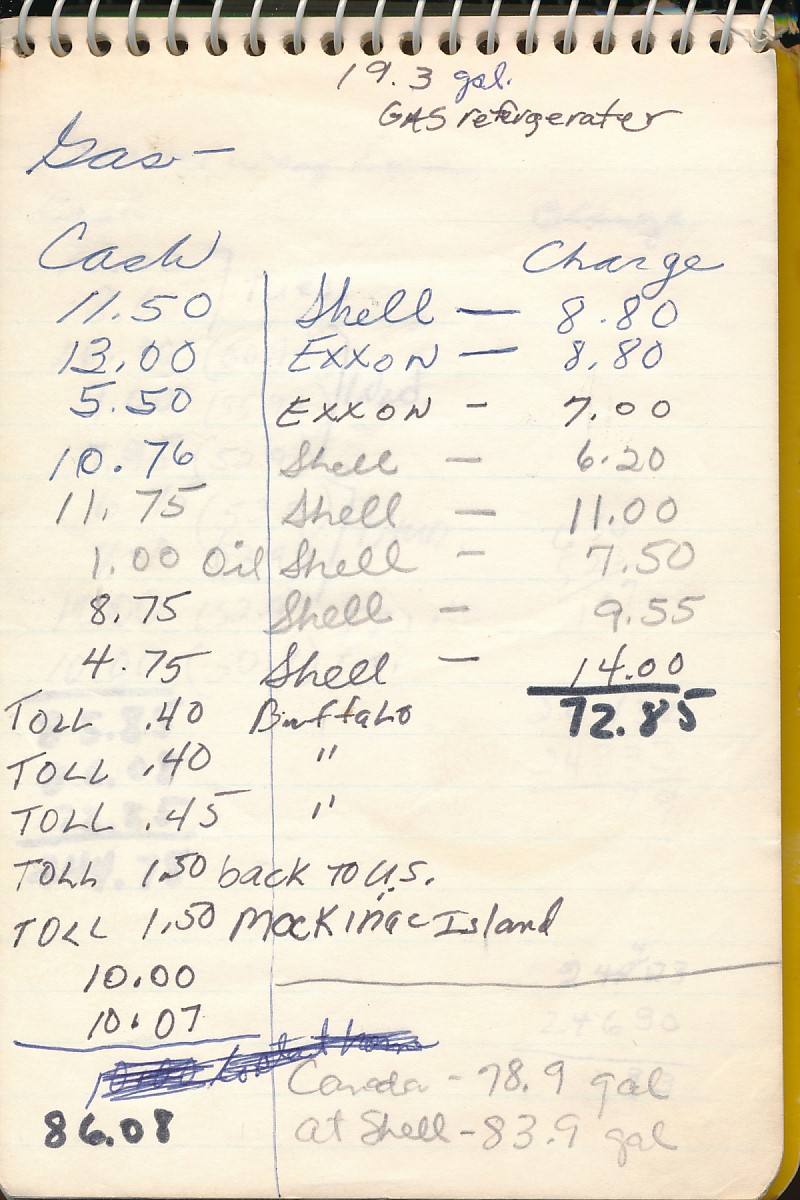 19.3 gal.
GAS refergerater
Gas —
Cash Charge
11.50 Shell — 8.80
13.00 EXXON — 8.80
5.50 EXXON - 7.00
10.76 Shell — 6.20
11.75 Shell — 11.00
1.00 Oil Shell - 7.50
8.75 Shell - 9.55
4.75 Shell — 14.00
TOLL .40 Buffalo 72.85
TOLL .40 "
TOLL .45 "
TOLL 1.50 back TO U.S.
TOLL 1.50 Mackinac Island
10.00
10.07
10.00
Canada - 78.9 gal
86.08 at Shell - 83.9 gal